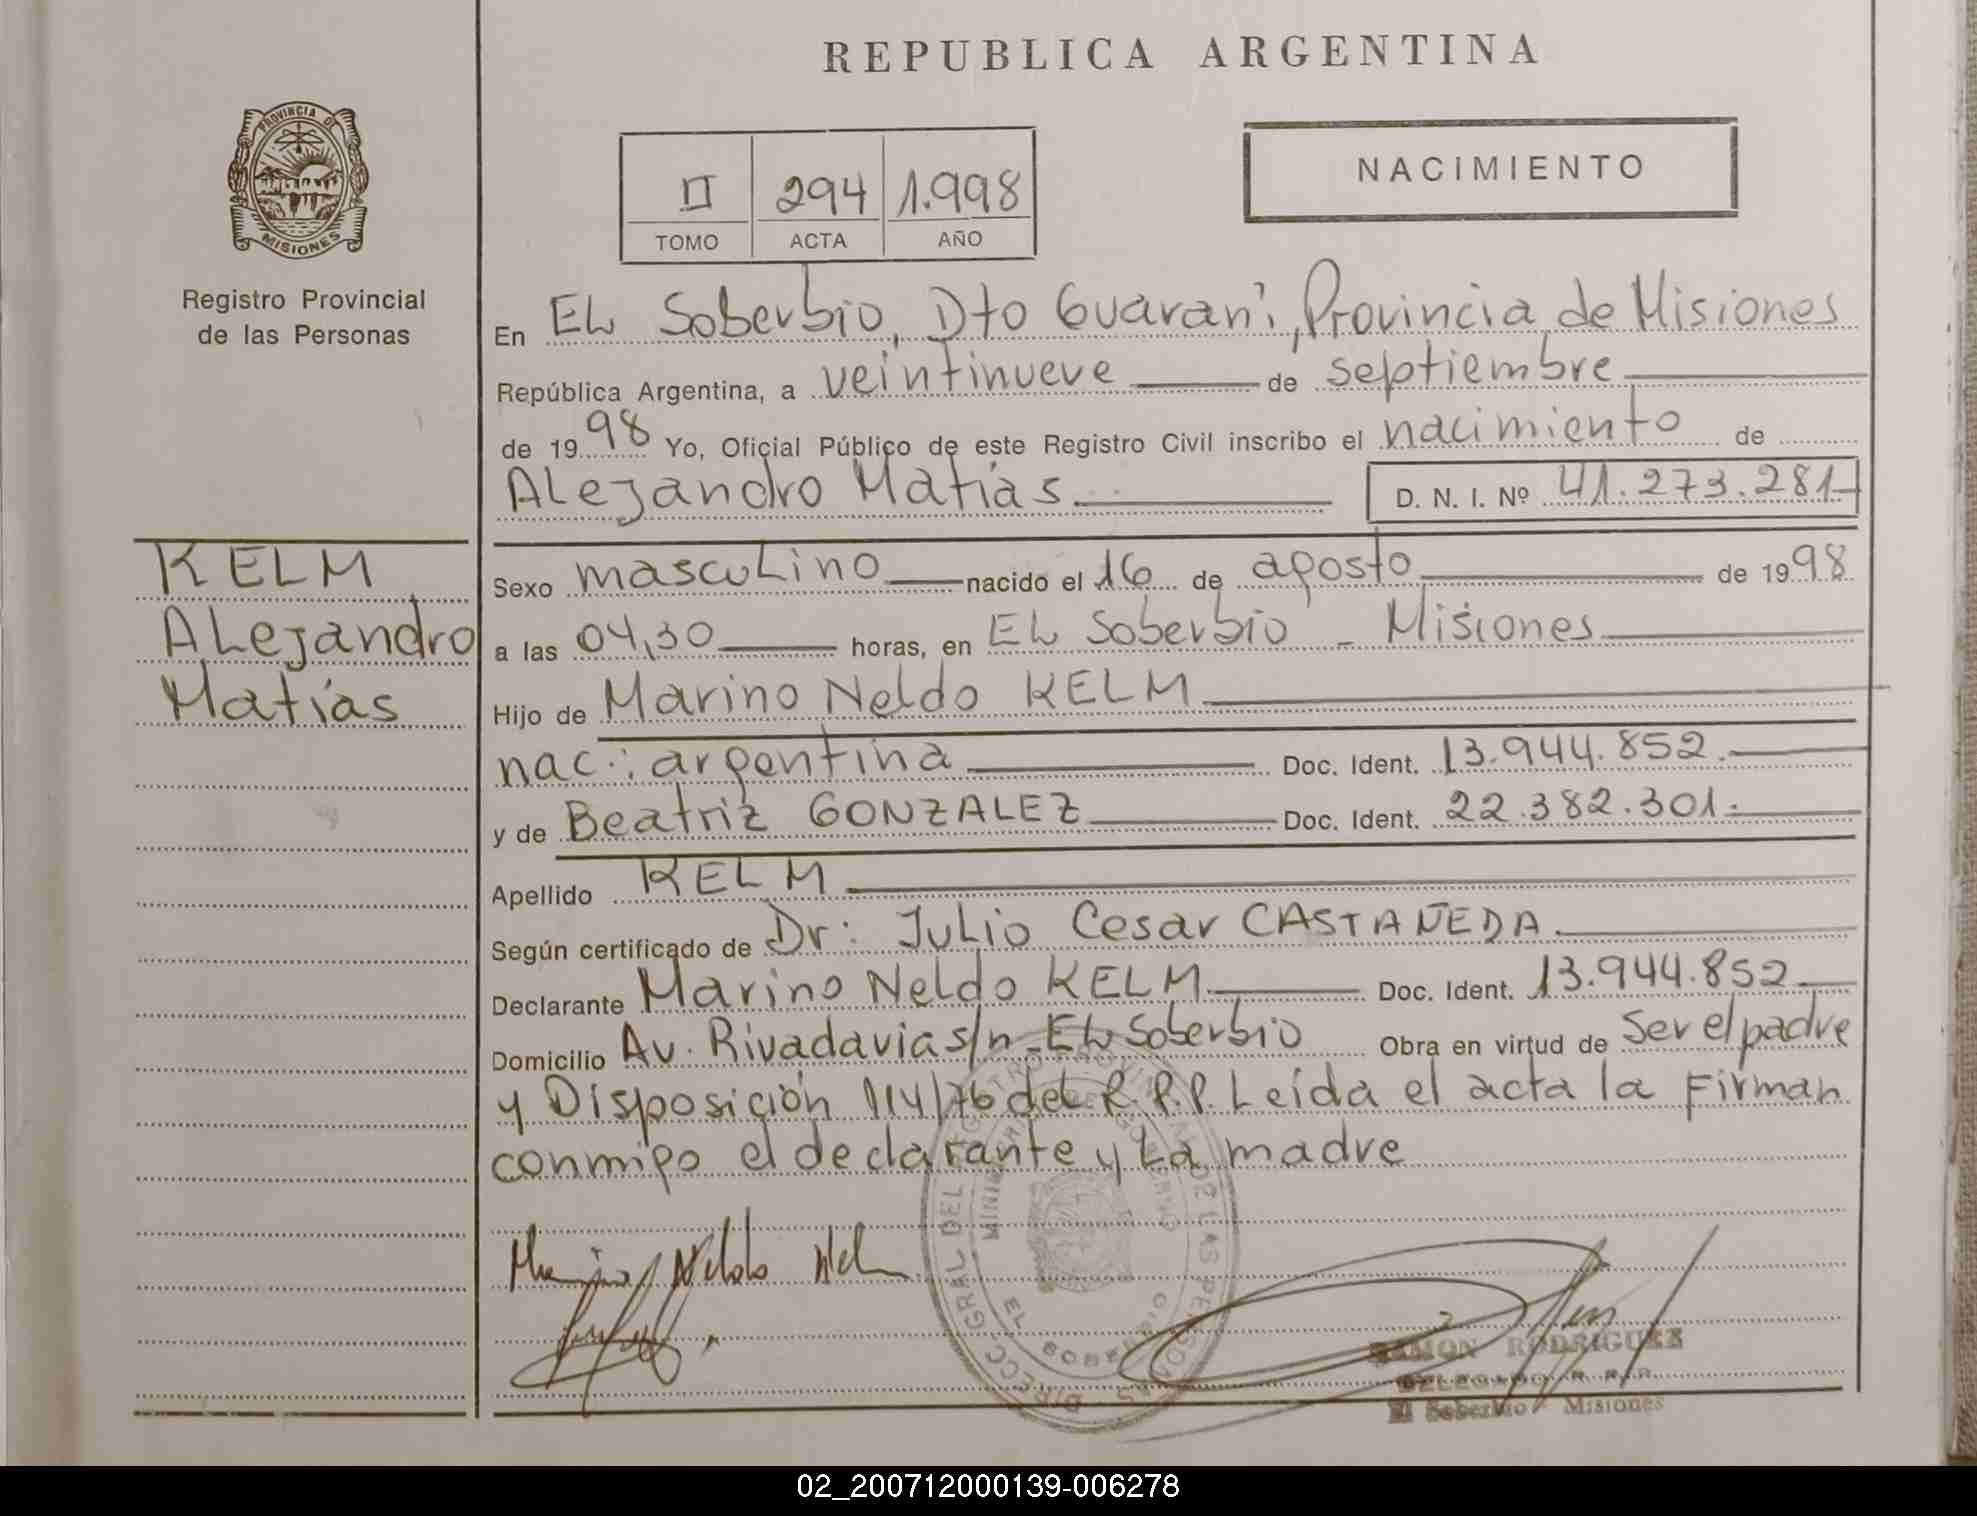 REPUBLICA ARGENTINA
PROVINCIA DE
MISIONES
Registro Provincial
de las Personas
II 294 1.998
TOMO ACTA AÑO
NACIMIENTO
En EL Soberbio, Dto Guaraní, Provincia de Misiones
República Argentina, a veintinueve de septiembre
de 1998 Yo, Oficial Público de este Registro Civil inscribo el nacimiento de
Alejandro Matías D. N. I. Nº 41.273.281
KELM
Alejandro
Matías
Sexo masculino nacido el 16 de agosto de 1998
a las 04,30 horas, en EL Soberbio - Misiones
Hijo de Marino Neldo KELM
nac.: argentina Doc. Ident. 13.944.852.
y de Beatriz GONZALEZ Doc. Ident. 22.382.301.
Apellido KELM
Según certificado de Dr: Julio Cesar CASTAÑEDA
Declarante Marino Neldo KELM Doc. Ident. 13.944.852
Domicilio Av. Rivadavia s/n - EL Soberbio Obra en virtud de ser el padre
y Disposición 114/76 del R.P.P. Leída el acta la firman
conmigo el declarante y La madre
DIRECC GRAL DEL REGISTRO PROVINCIAL DE LAS PERSONAS
EL SOBERBIO
RAMON RODRIGUEZ
DELEGADO R.P.P.
El Soberbio Misiones
02_200712000139-006278